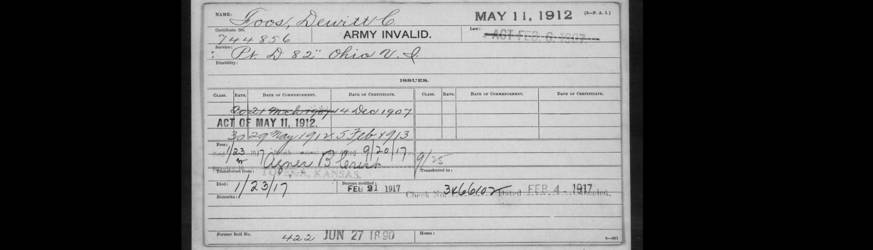 NAME: Foos, Dewitt C. MAY 11, 1912 (3-P.A.I.)
Certificate No. 744856 ARMY INVALID. Law: ACT FEB 6 1907
Service: Pt. D 82" Ohio V. I.
Disability:
ISSUES.
CLASS. RATE. DATE OF COMMENCEMENT. DATE OF CERTIFICATE. CLASS. RATE. DATE OF COMMENCEMENT. DATE OF CERTIFICATE.
20 21 Mch 1907 14 Dec 1907
ACT OF MAY 11, 1912.
30 29 May 1912 5 Feb 1913
Fees: 1/23 17 Agnes B 9/20/17 9/25
Transferred from TOPEKA, KANSAS. Transferred to
Died: 1/23/17 Bureau notified: FEB 21 1917 Check No. 3466102 Dated FEB 4 - 1917
Remarks:
Former Roll No. 422 JUN 27 1890 Home: